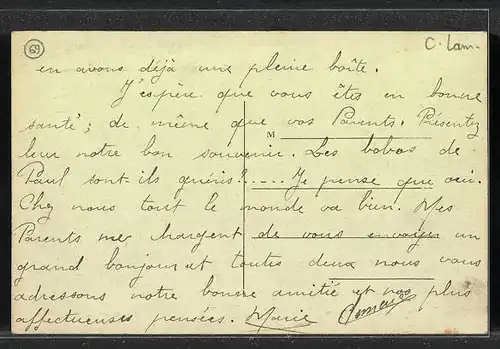 69
C. Lam-
en avons déjà une pleine boîte.
J'espère que vous êtes en bonne
santé; de même que vos Parents. Présentez
M
leur notre bon souvenir. Les bobos de
Paul sont-ils guéris?..... Je pense que oui.
Chez nous tout le monde va bien. Mes
Parents me chargent de vous envoyer un
grand bonjour et toutes deux nous vous
adressons notre bonne amitié et nos plus
affectueuses pensées. Marie